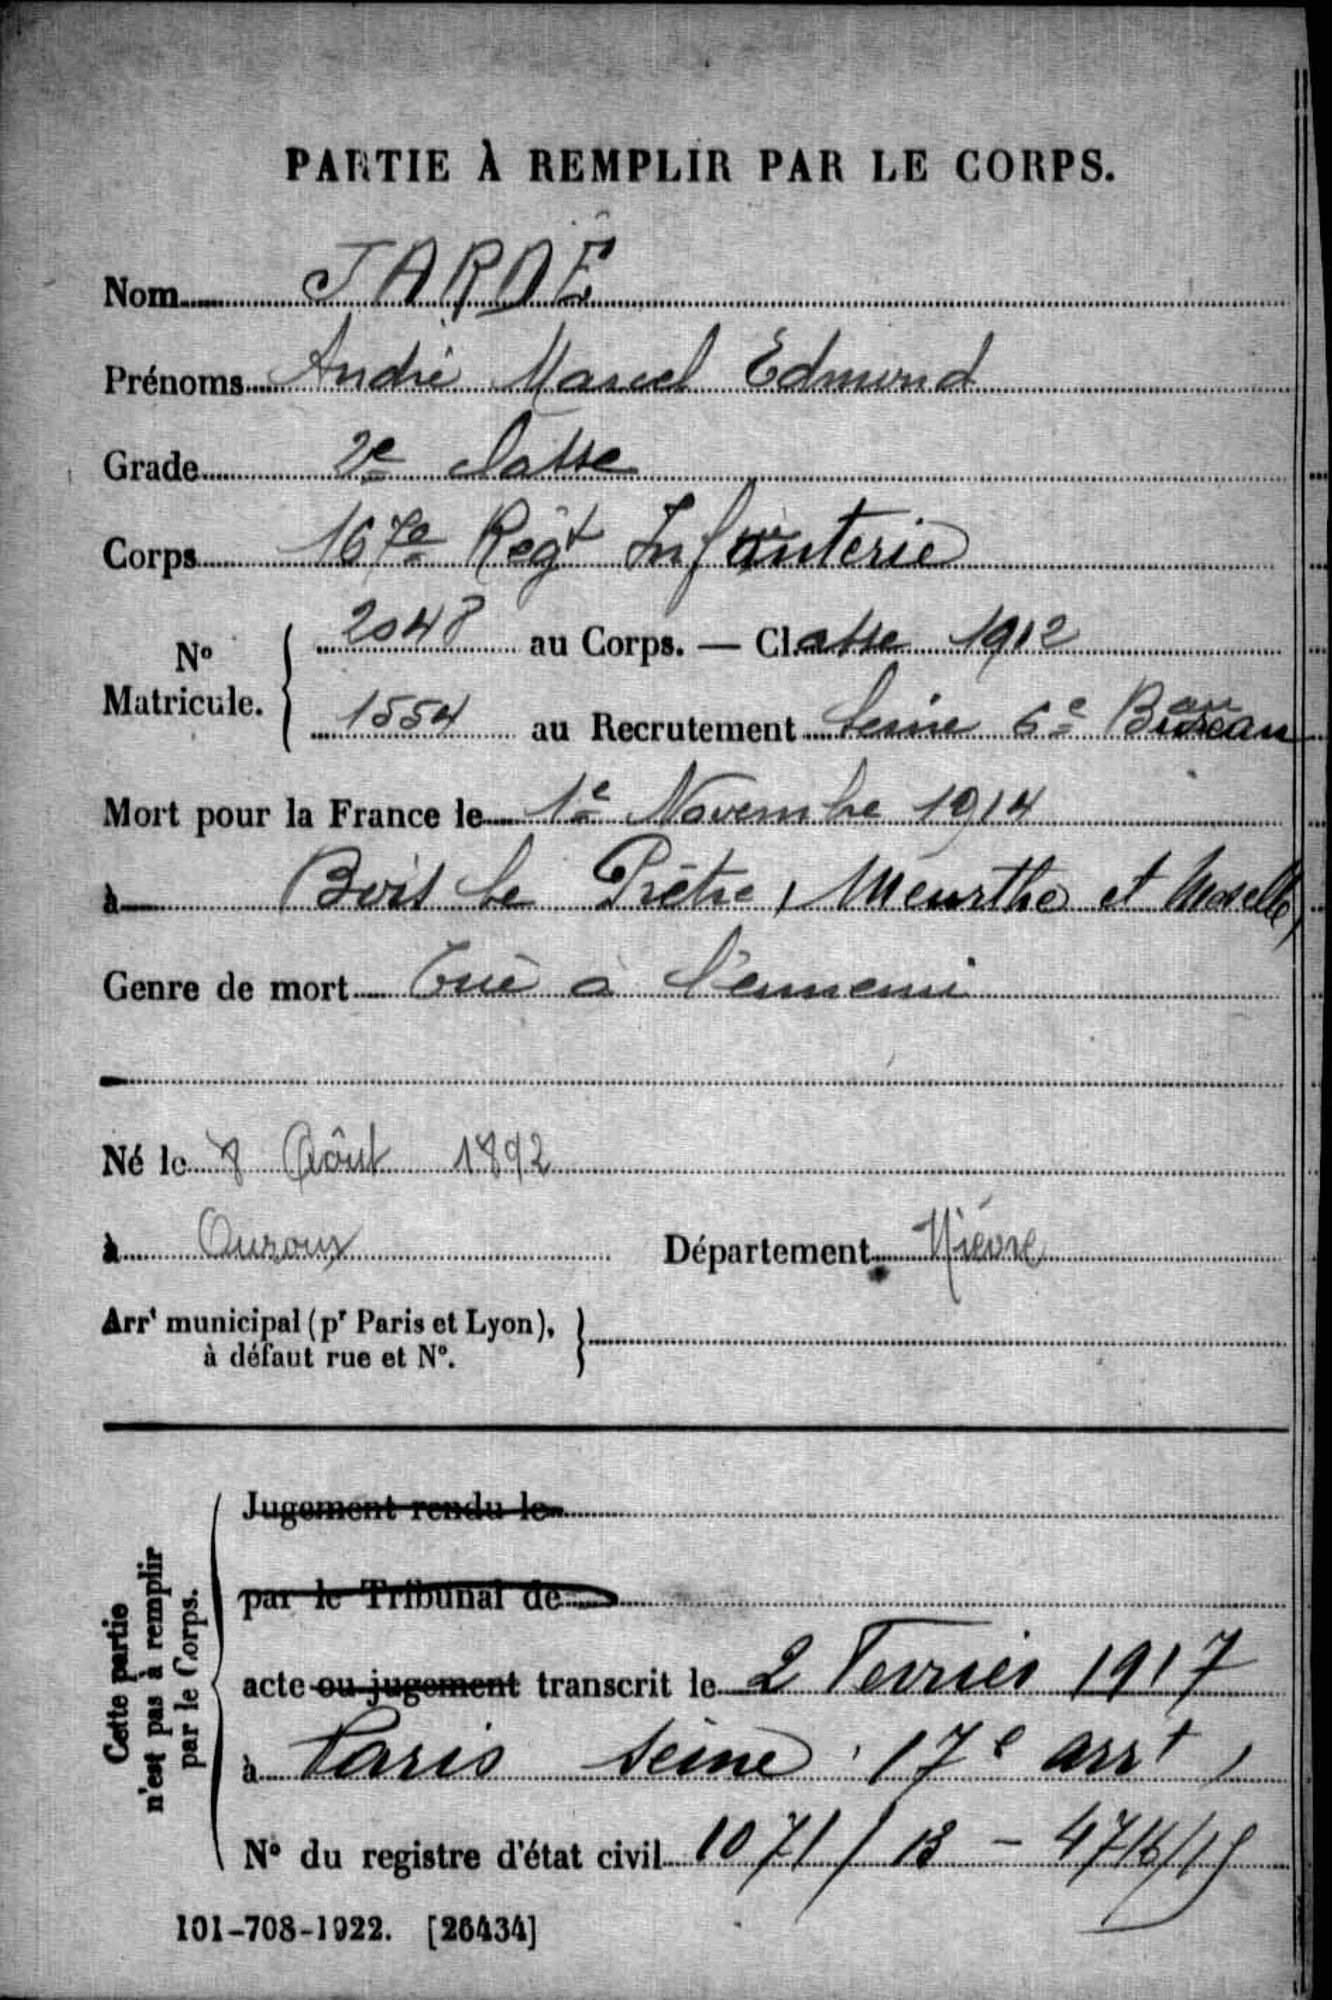 PARTIE À REMPLIR PAR LE CORPS.
Nom JARDÉ
Prénoms André Marcel Edmond
Grade 2e classe
Corps 167e Régt Infanterie
No Matricule. 2048 au Corps. — Classe 1912
1554 au Recrutement Seine 6e Bureau
Mort pour la France le 1e Novembre 1914
à Bois Le Prêtre, Meurthe et Moselle
Genre de mort Tué à l'ennemi
Né le 8 Août 1892
à Ouroux Département Nièvre
Arrt municipal (pr Paris et Lyon),
à défaut rue et No.
Cette partie
n'est pas à remplir
par le Corps.
Jugement rendu le
par le Tribunal de
acte ou jugement transcrit le 2 Fevrier 1917
à Paris Seine 17e arrt
No du registre d'état civil 1071/13 -
101-708-1922. [26434]